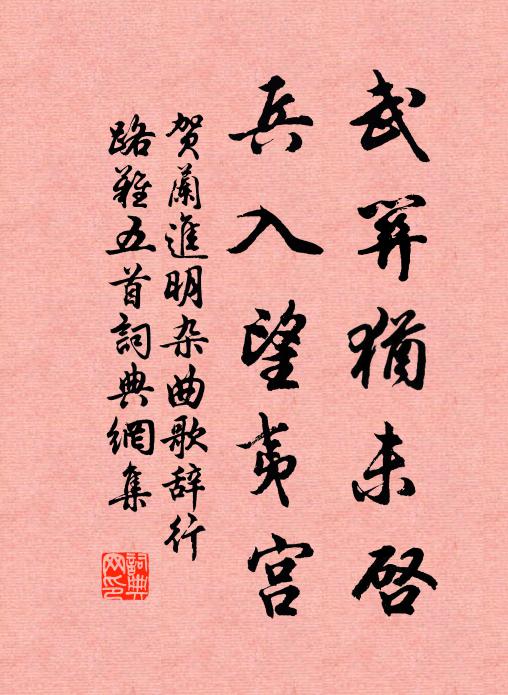 武关犹未启
兵入望夷宫
贺蘭進明杂曲歌辞行
路難五首詞典網集
詞典
网印